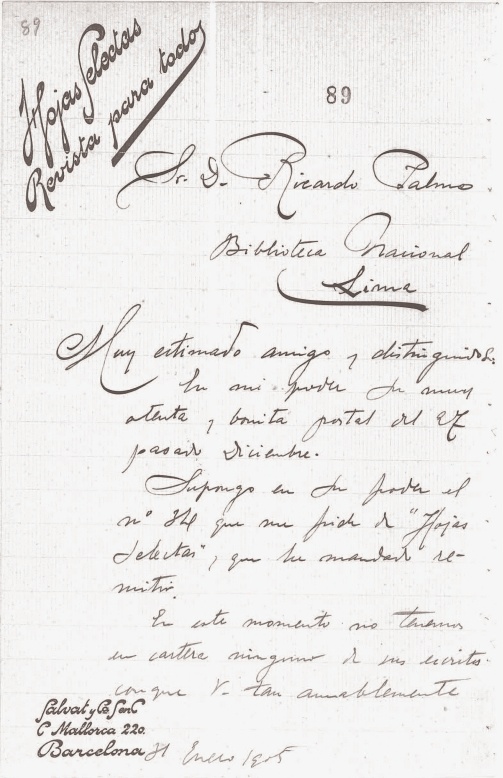 89
Hojas Selectas
Revista para todos
89
Sr. D. Ricardo Palma
Biblioteca Nacional
Lima
Muy estimado amigo y distinguido S.:
En mi poder su muy
atenta y bonita postal del 27
pasado Diciembre.
Supongo en su poder el
nº 34 que me pide de "Hojas
Selectas", que he mandado re-
mitir.
En este momento no tenemos
en cartera ninguno de sus escritos
con que V. tan amablemente
Salvat y Cª, S. en C.
C Mallorca 220.
Barcelona 31 Enero 1905